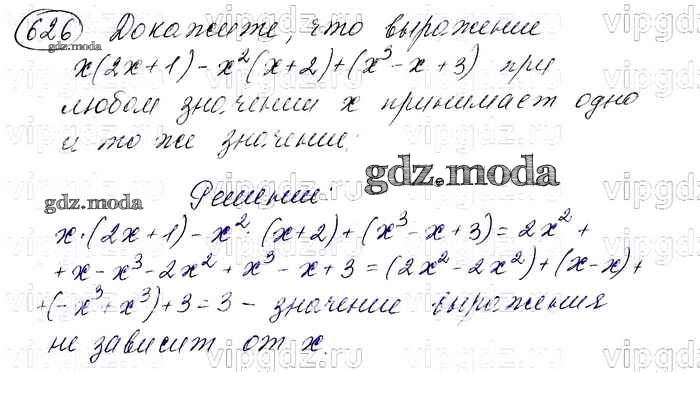 626 Докажите, что выражение
gdz.moda
x(2x+1)-x²(x+2)+(x³-x+3) при
любом значении x принимает одно
и то же значение.
gdz.moda
gdz.moda
Решение:
x·(2x+1)-x²·(x+2)+(x³-x+3)=2x²+
+x-x³-2x²+x³-x+3=(2x²-2x²)+(x-x)+
+(-x³+x³)+3=3- значение выражения
не зависит от x.
vipgdz.ru